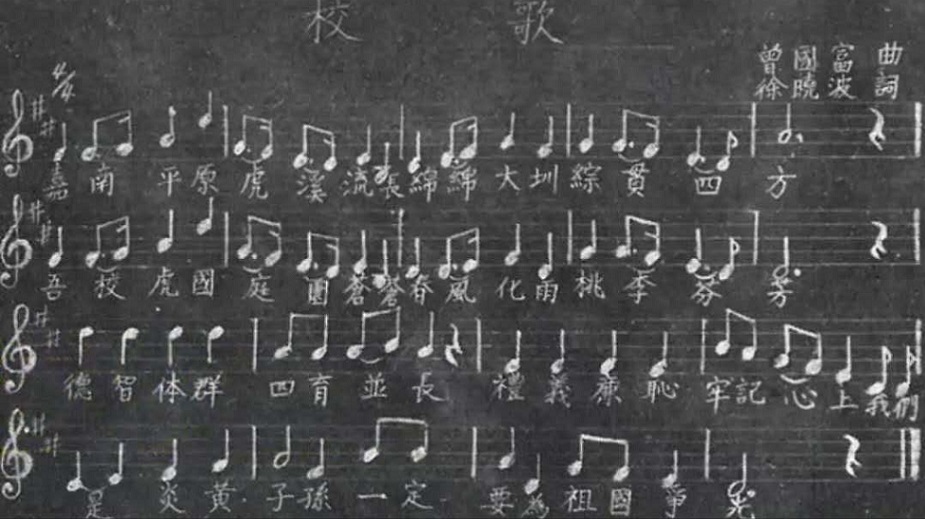 校歌
曾國富曲
徐曉波詞
4/4
嘉南平原虎溪流長綿綿大圳綜貫四方
吾校虎國庭園蒼蒼春風化雨桃李芬芳
德智体群四育並長禮義廉恥牢記心上我們
是炎黃子孫一定要為祖國爭光